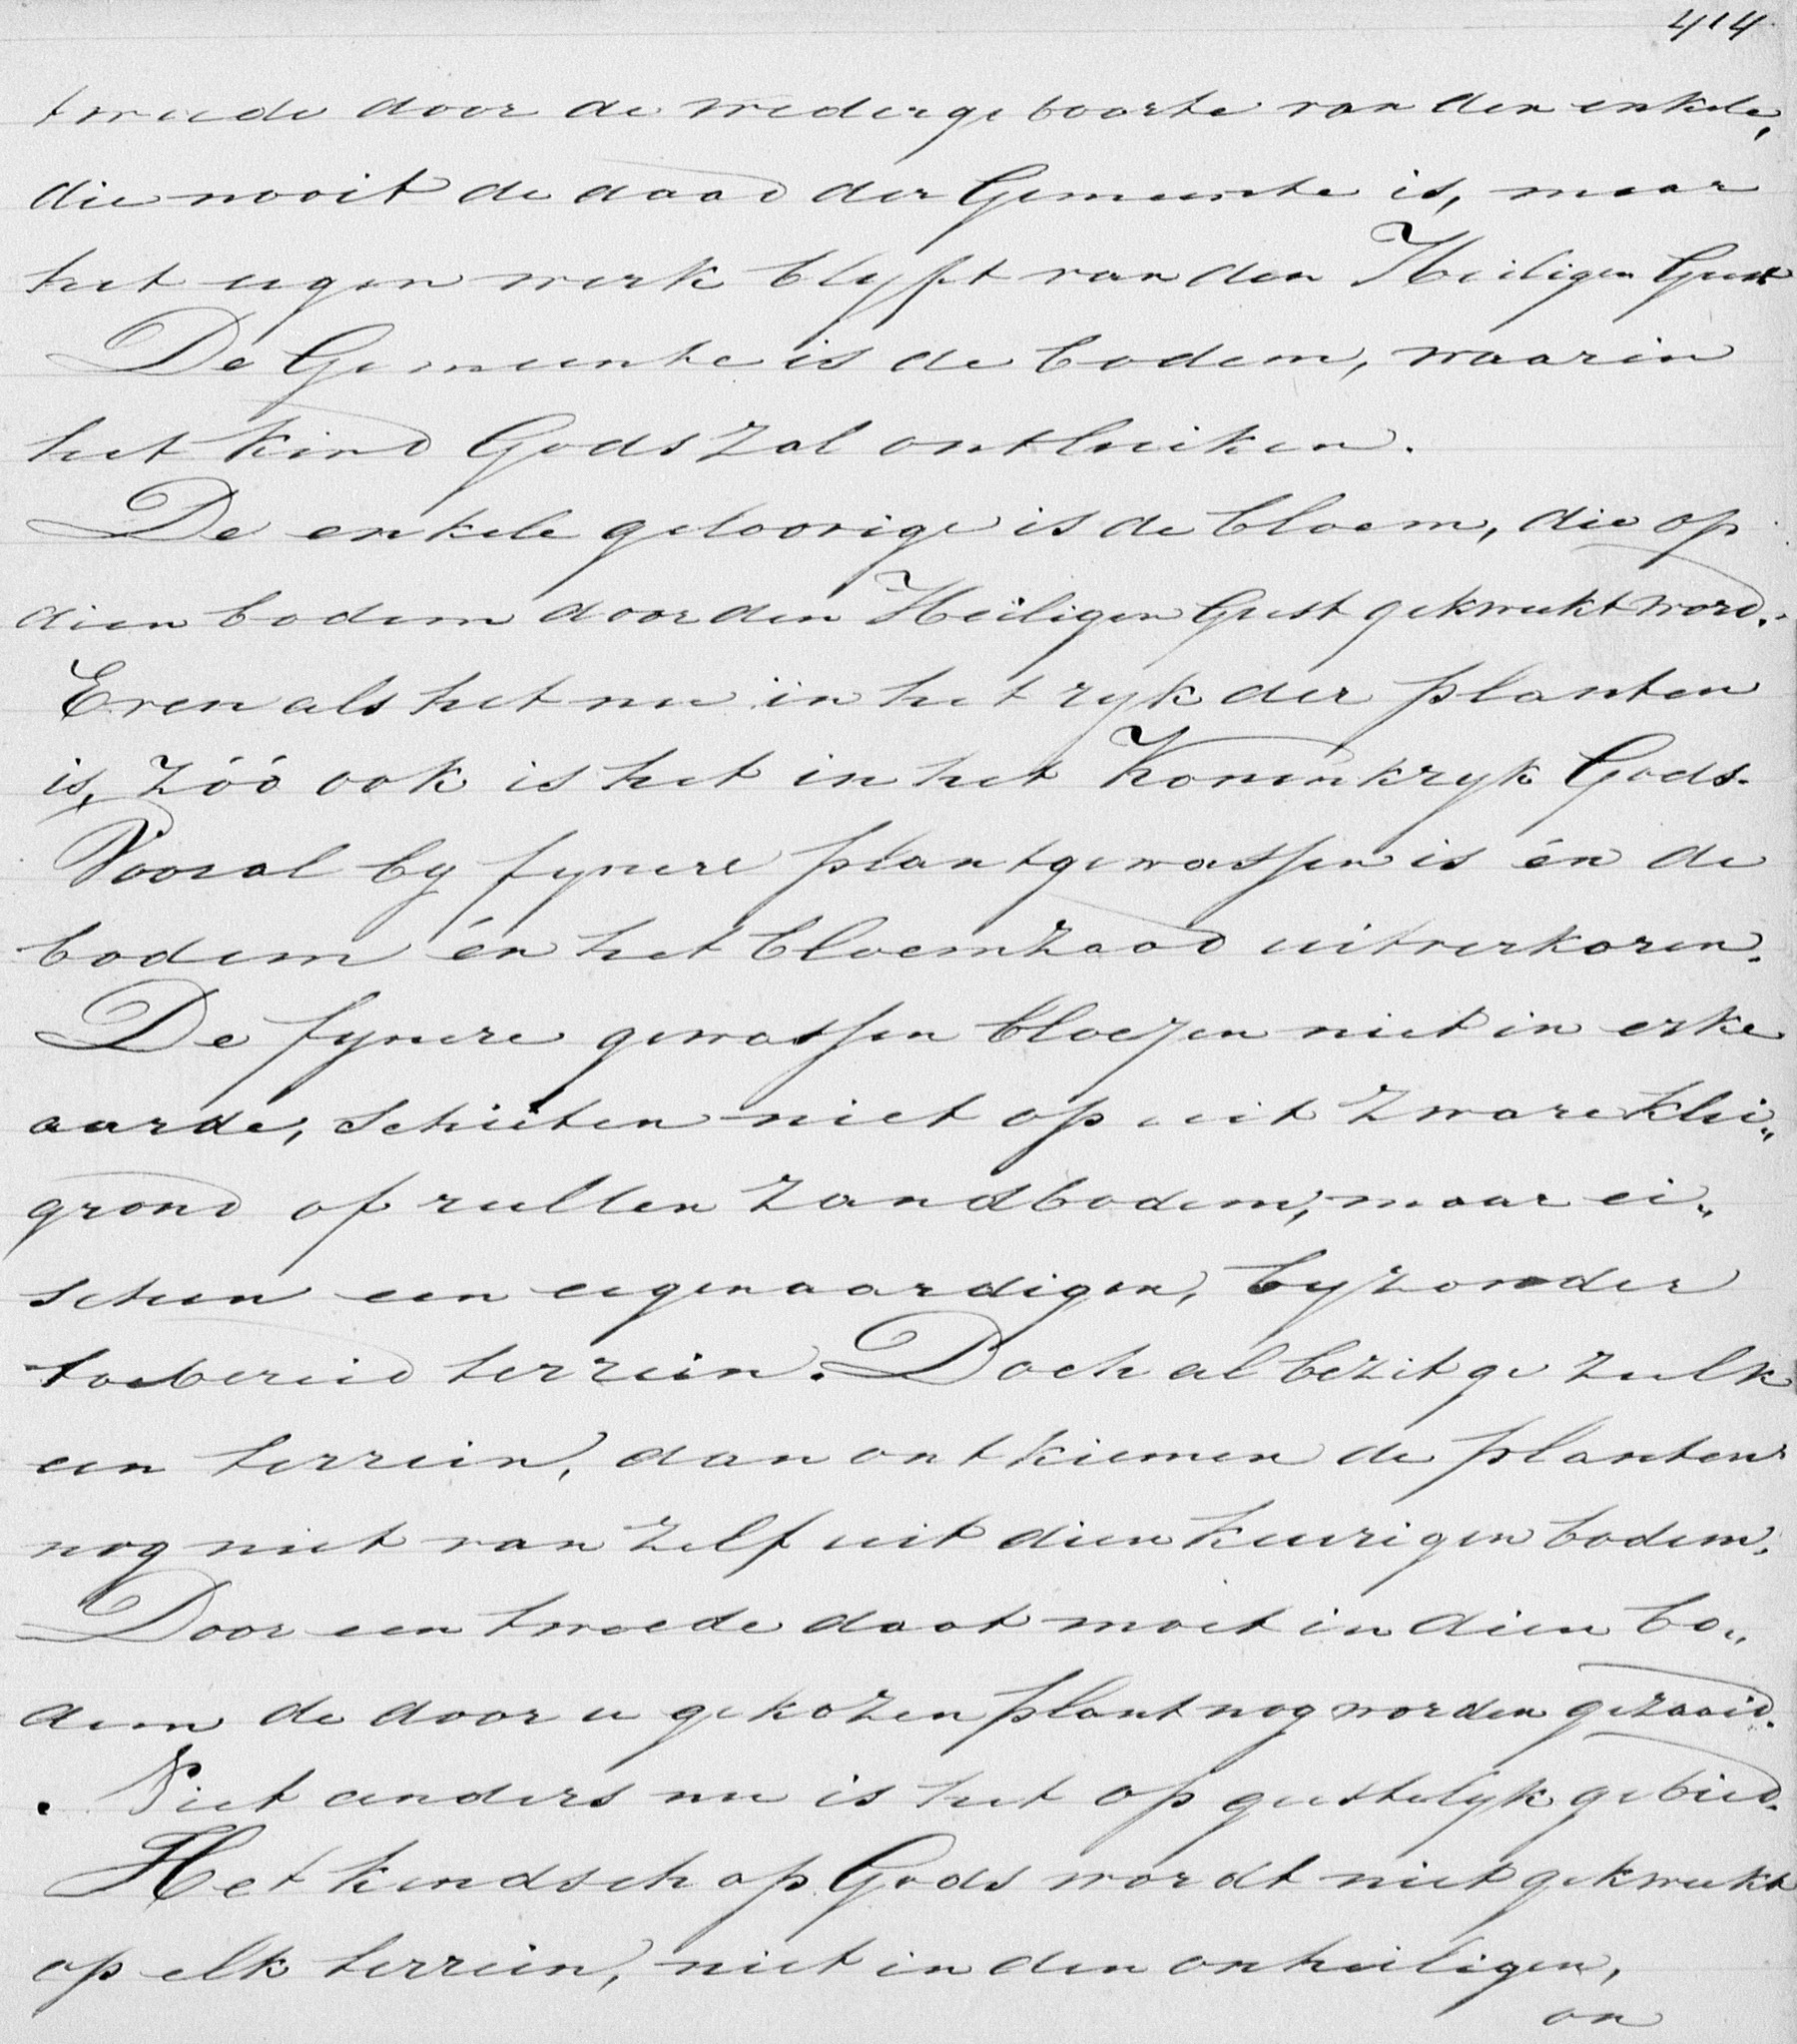 414
tweede door de wedergeboorte van den enkele,
die nooit de daad der Gemeente is, maar
het eigen werk blyft van den Heiligen Geest
De Gemeente is de bodem, waarin
het kind Gods zal ontluiken.
De enkele geloovige is de bloem, die op
dien bodem door den Heiligen Geest gekweekt word.
Even als het nu in het ryk der planten
is, zóó ook is het in het Koninkryk Gods.
Vooral by fynere plantgewassen is én de
bodem én het bloemzaad uitverkoren.
De fynere gewassen bloezen niet in elke
aarde, schieten niet op uit zware klei„
grond of rullen zandbodem, maar ei„
schen een eigenaardigen, byzonder
toebereid terrein. Doch al bezit ge zulk
een terrein, dan ontkiemen de planten
nog niet van zelf uit dien keurigen bodem.
Door een tweede daat moet in dien bo„
dem de door u gekozen plant nog worden gezaaid.
Niet anders nu is het op geestelyk gebied.
Het kindschap Gods wordt niet gekweekt
op elk terrein, niet in den onheiligen,
on